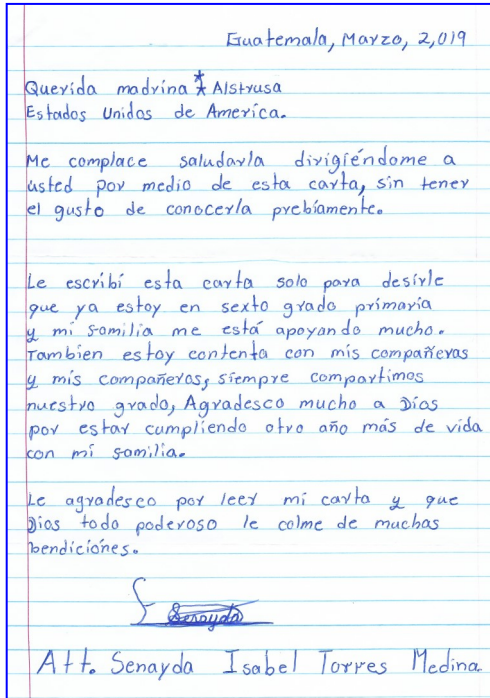 Guatemala, Marzo, 2,019
Querida madrina ** Alstrusa
Estados Unidos de America.
Me complace saludarla dirigiéndome a
usted por medio de esta carta, sin tener
el gusto de conocerla prebíamente.
Le escribí esta carta solo para desirle
que ya estoy en sexto grado primaria
y mi familia me está apoyando mucho.
Tambien estoy contenta con mis compañeras
y mis compañeros, siempre compartimos
nuestro grado, Agradesco mucho a Dios
por estar cumpliendo otro año más de vida
con mi familia.
Le agradesco por leer mi carta y que
Dios todo poderoso le colme de muchas
bendiciónes.
Senayda
Att. Senayda Isabel Torres Medina